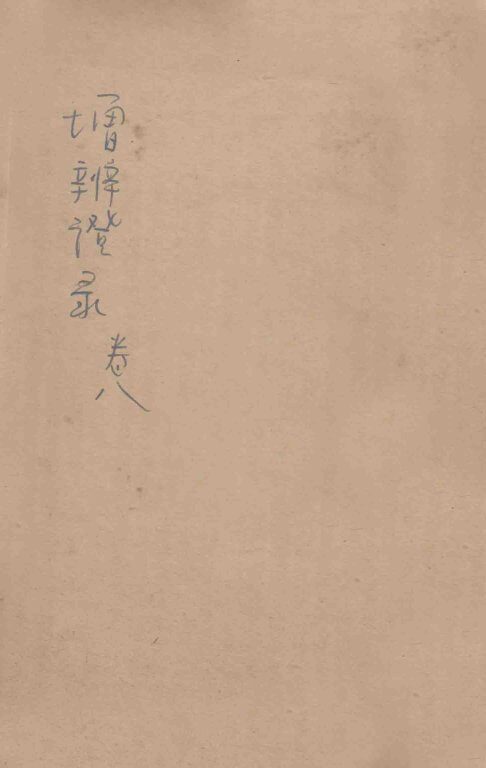 增辨證录
卷八